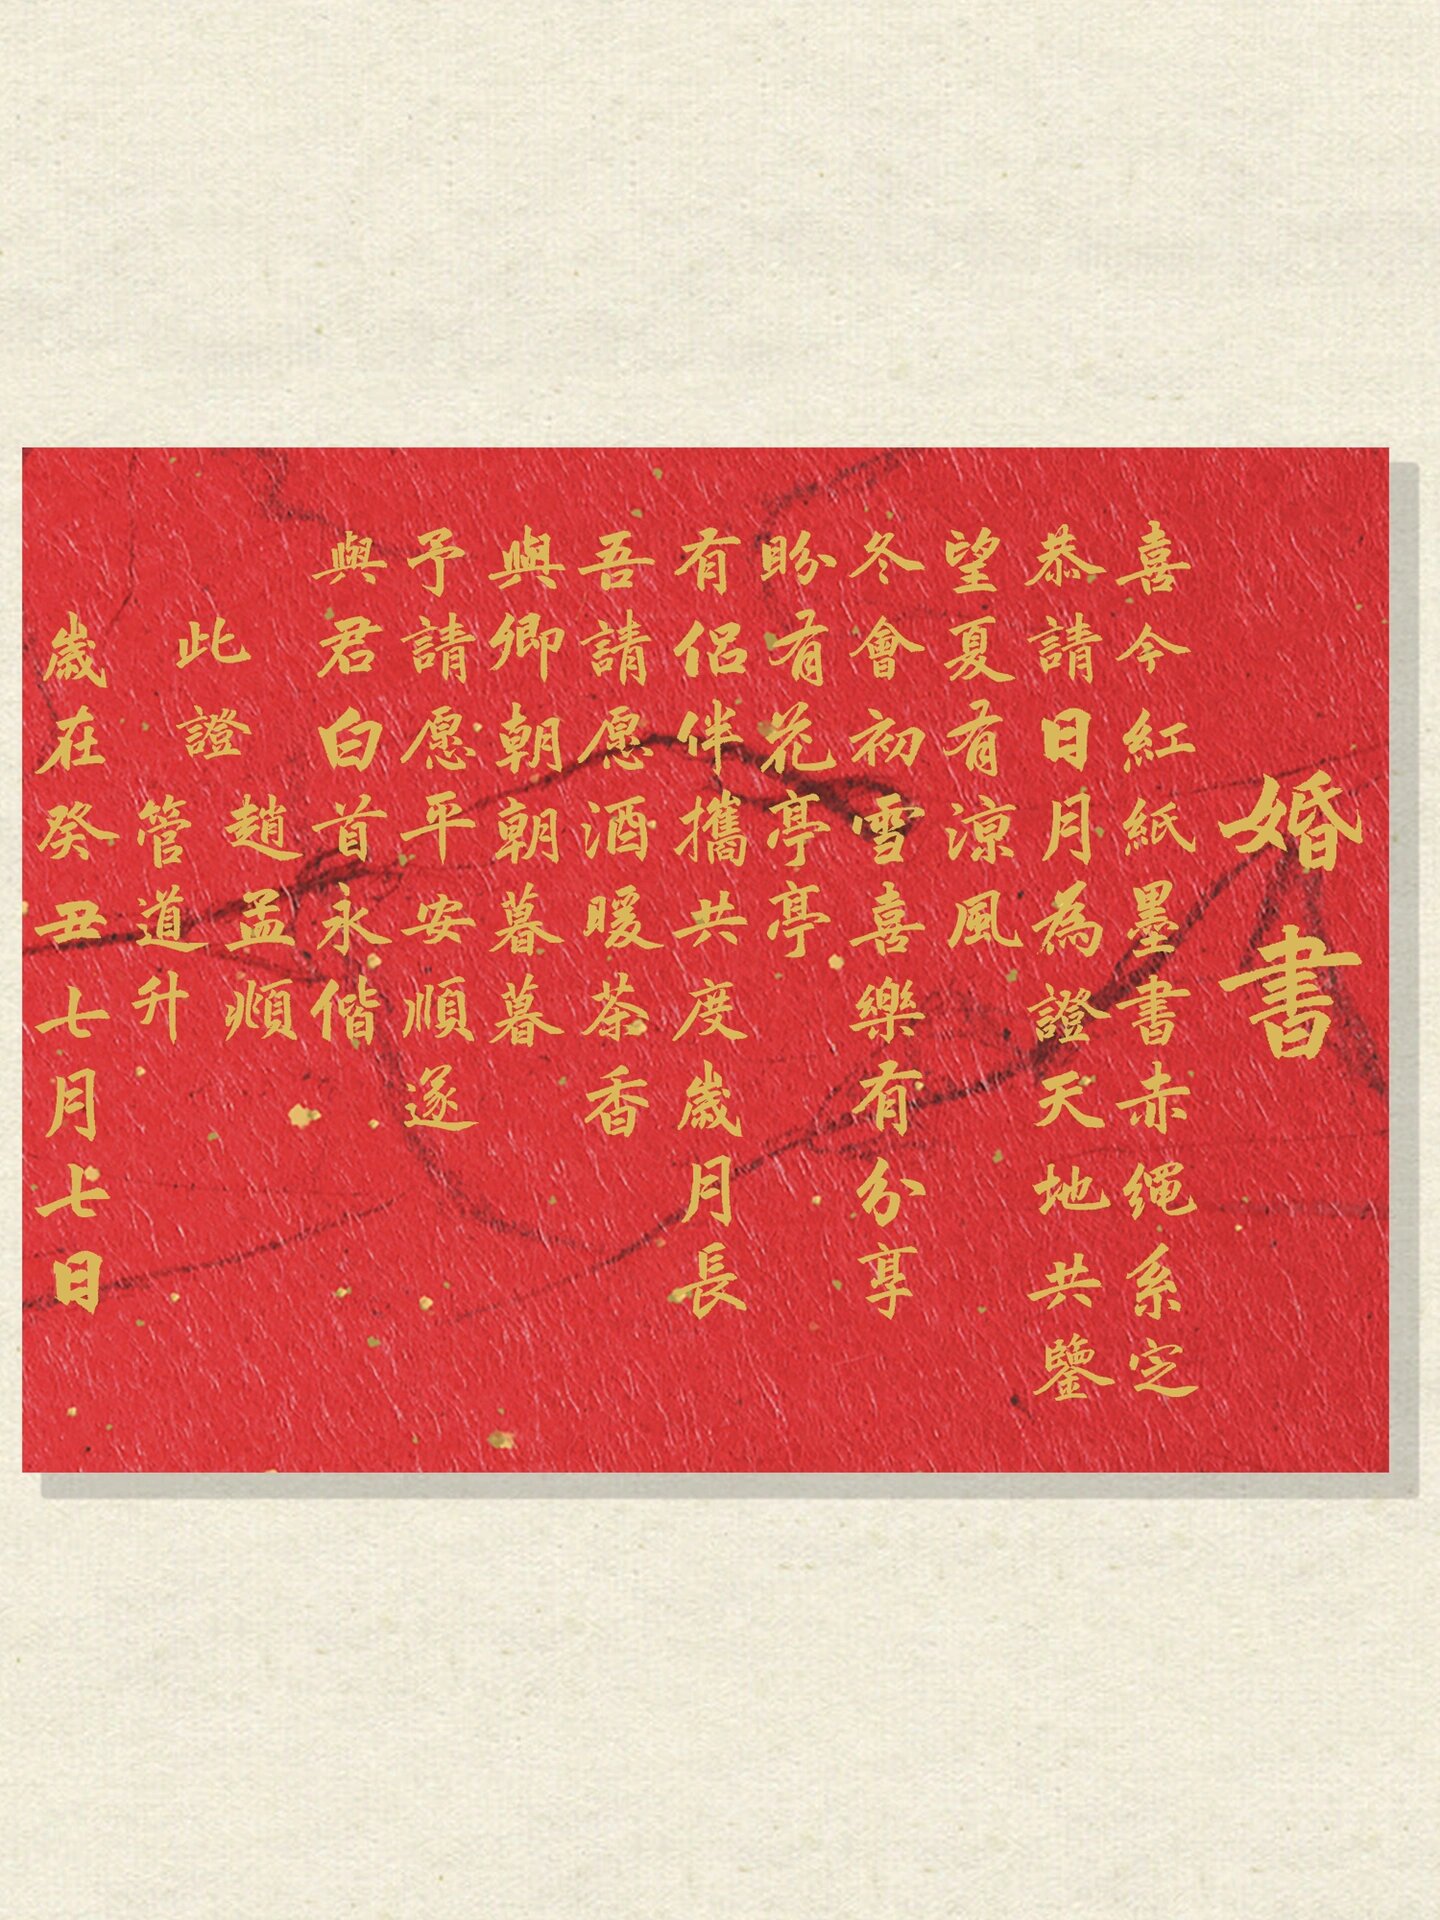 婚書
喜今紅紙墨書赤绳系定
恭請日月為證天地共鑒
望夏有涼風
冬會初雪喜樂有分享
盼有花亭亭
有侣伴攜共度歲月長
吾請愿酒暖茶香
與卿朝朝暮暮
予請愿平安順遂
與君白首永偕
此證
趙孟頫
管道升
歲在癸丑七月七日